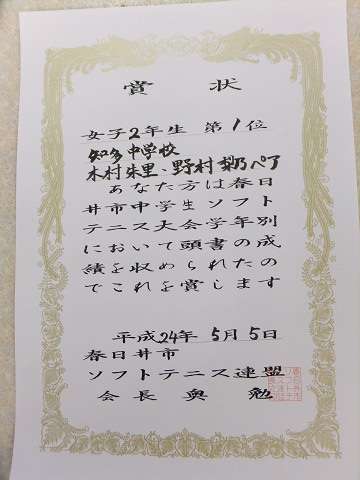 賞状
女子2年生 第1位
知多中学校
木村朱里、野村梨乃ペア
あなた方は春日
井市中学生ソフト
テニス大会学年別
において頭書の成
績を収められたの
でこれを賞します
平成24年 5月5日
春日井市
ソフトテニス連盟
会長 奥 勉